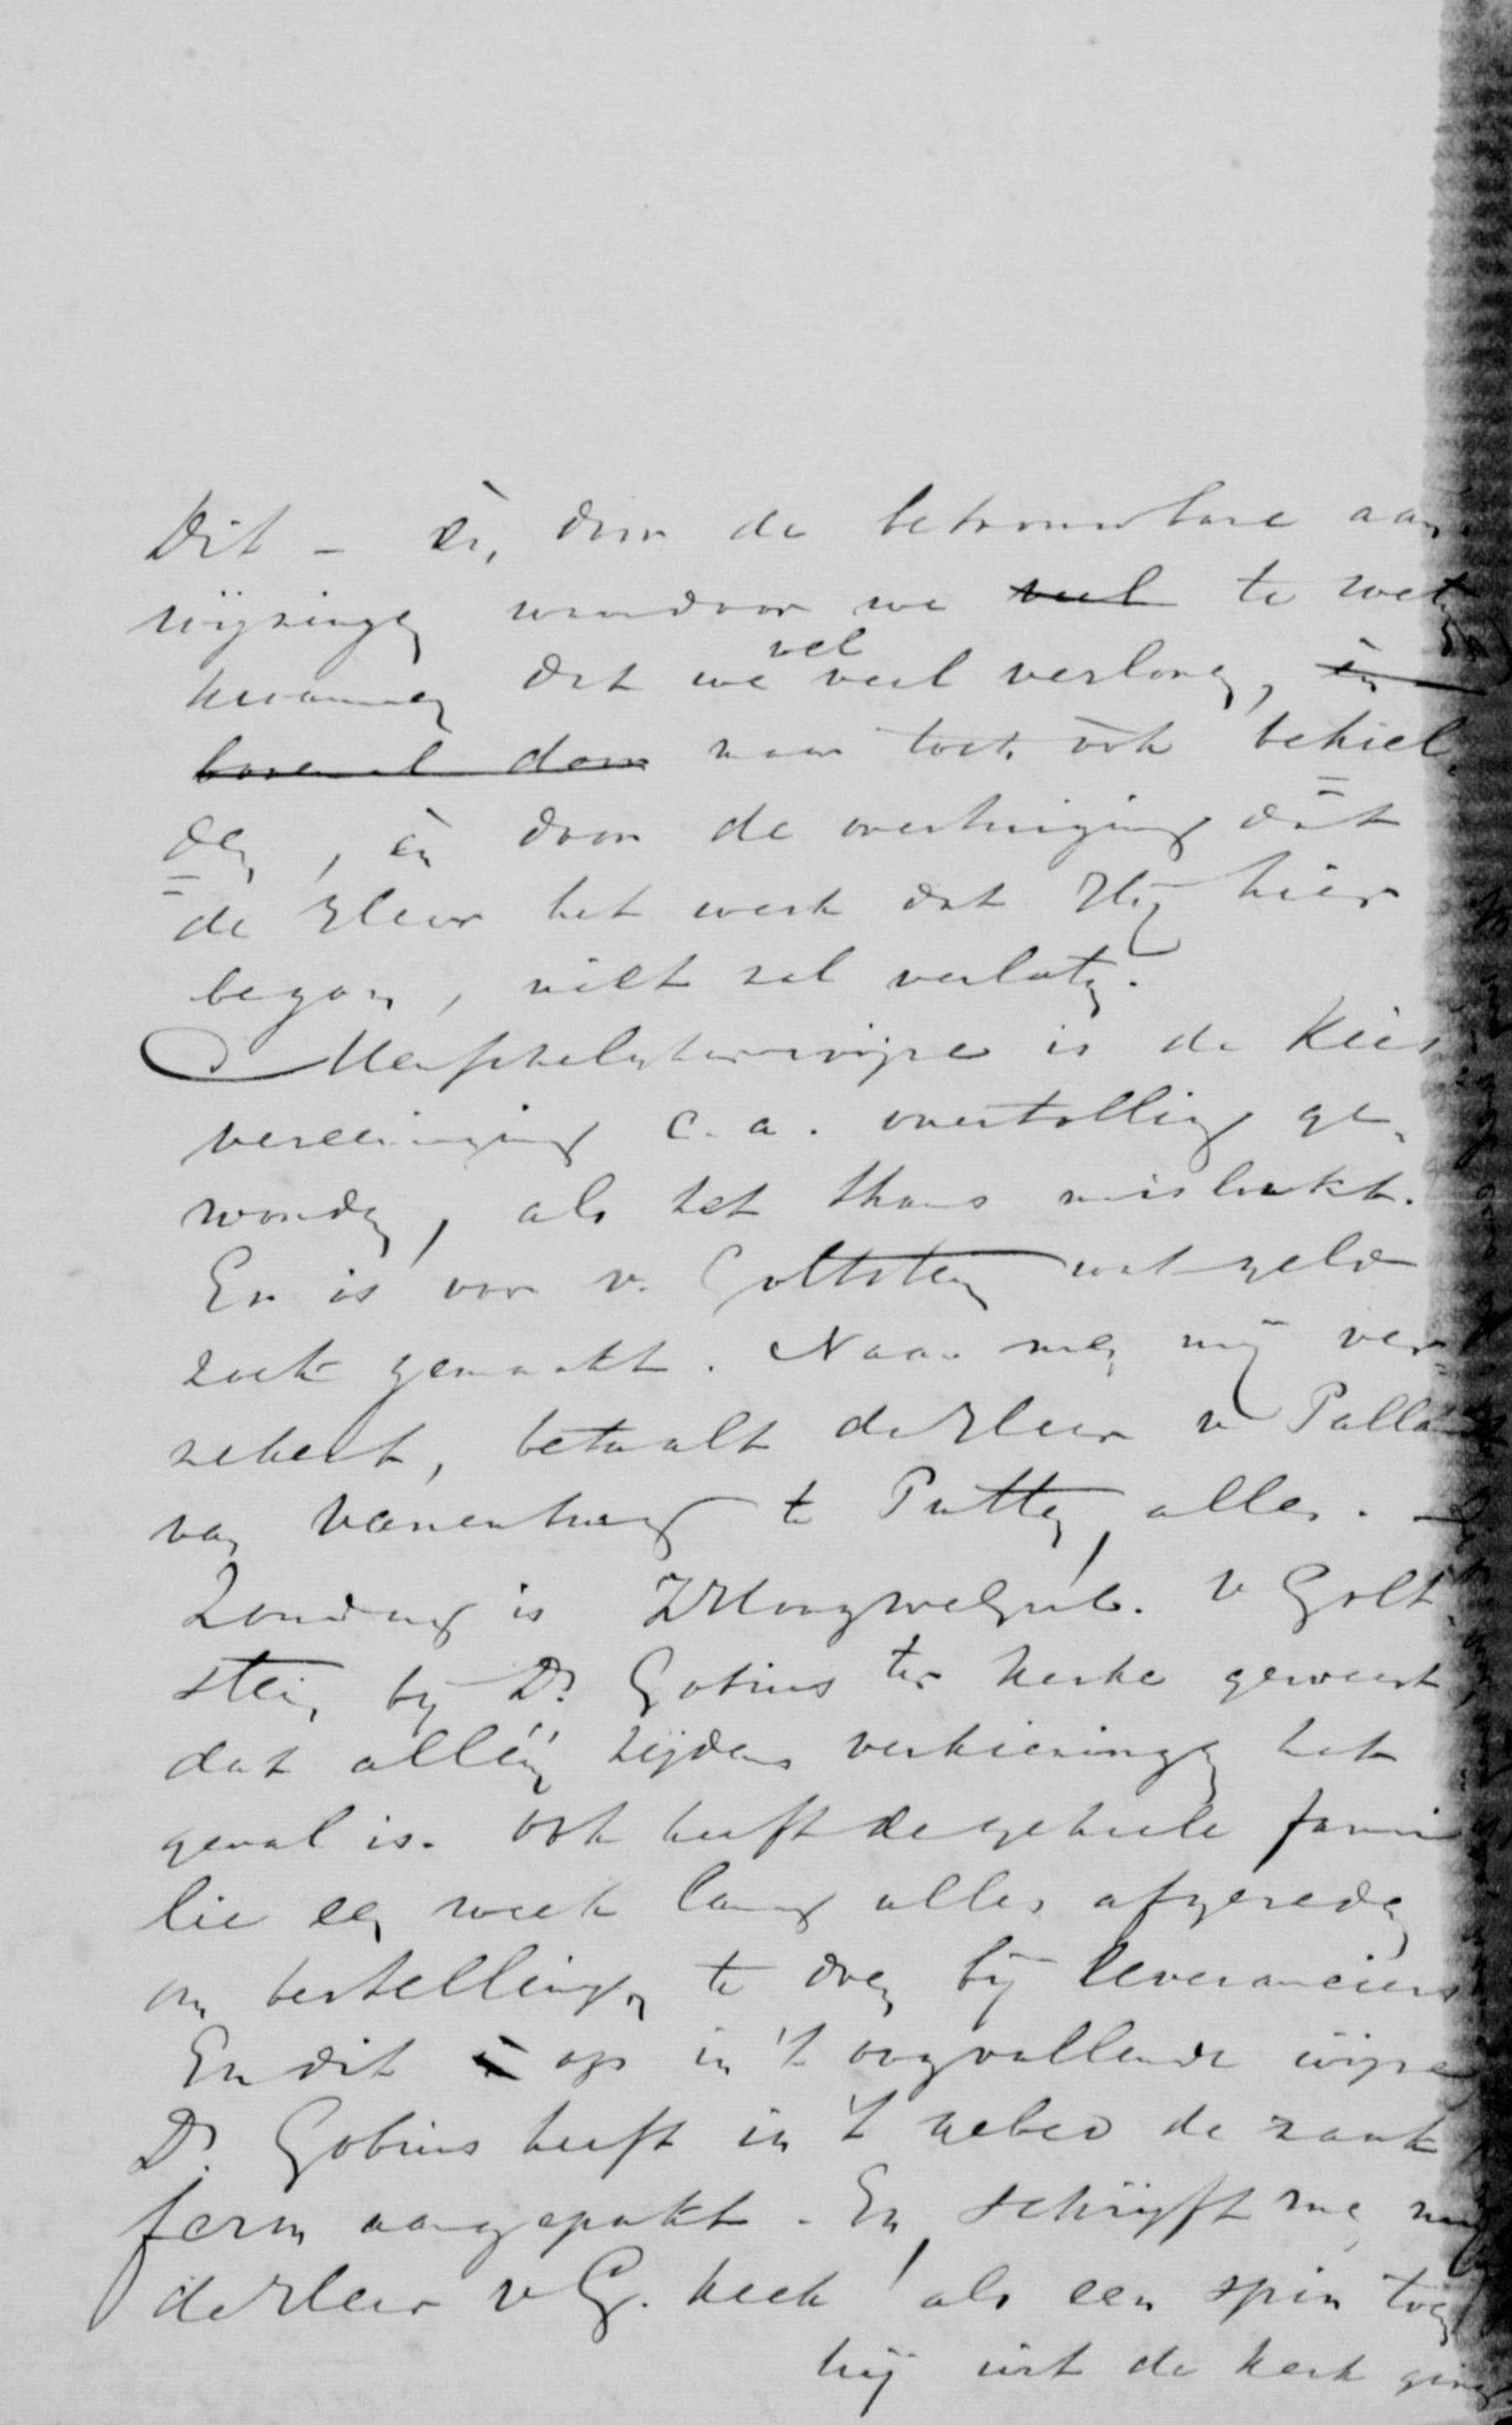 Dit – èn, door de betrouwbare aan-
wijzingen waardoor we veel te weten
kwamen dat we wel veel verloren, èn
door maar toch ook behiel-
den, èn door de overtuiging dàt
de Heer het werk dat Hij hier
begon, niet zal verlaten.
Menschelijkerwijze is de Kies
vereeniging c.a. overtollig ge-
worden, als het thans mislukt.
Er is voor v. Goltstein wat geld
zoek gemaakt. Naar men mij ver-
zekert, betaalt de Heer v Palla
van Vanenburg te Putten, alles. –
Zondag is ZHoogwelgeb. v Golt-
stein bij Ds Gobius ter kerke geweest,
dat alléén tijdens verkiezingen het
geval is. Ook heeft de geheele fami
lie een week lang alles afgereden
om bestellingen te doen bij leveranciers
En dit op in 't oogvallende wijze
Ds. Gobius heeft in 't gebed de zaak
ferm aangepakt. En, schrijft me men
de Heer v G. keek als een spin toen
hij uit de kerk ging